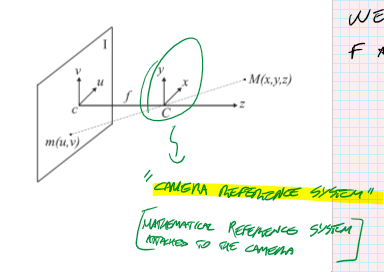 WE
F A
I
v
u
y
x
f
M(x,y,z)
c
C
z
m(u,v)
"CAMERA REFERENCE SYSTEM"
[MATHEMATICAL REFERENCE SYSTEM
ATTACHED TO THE CAMERA]